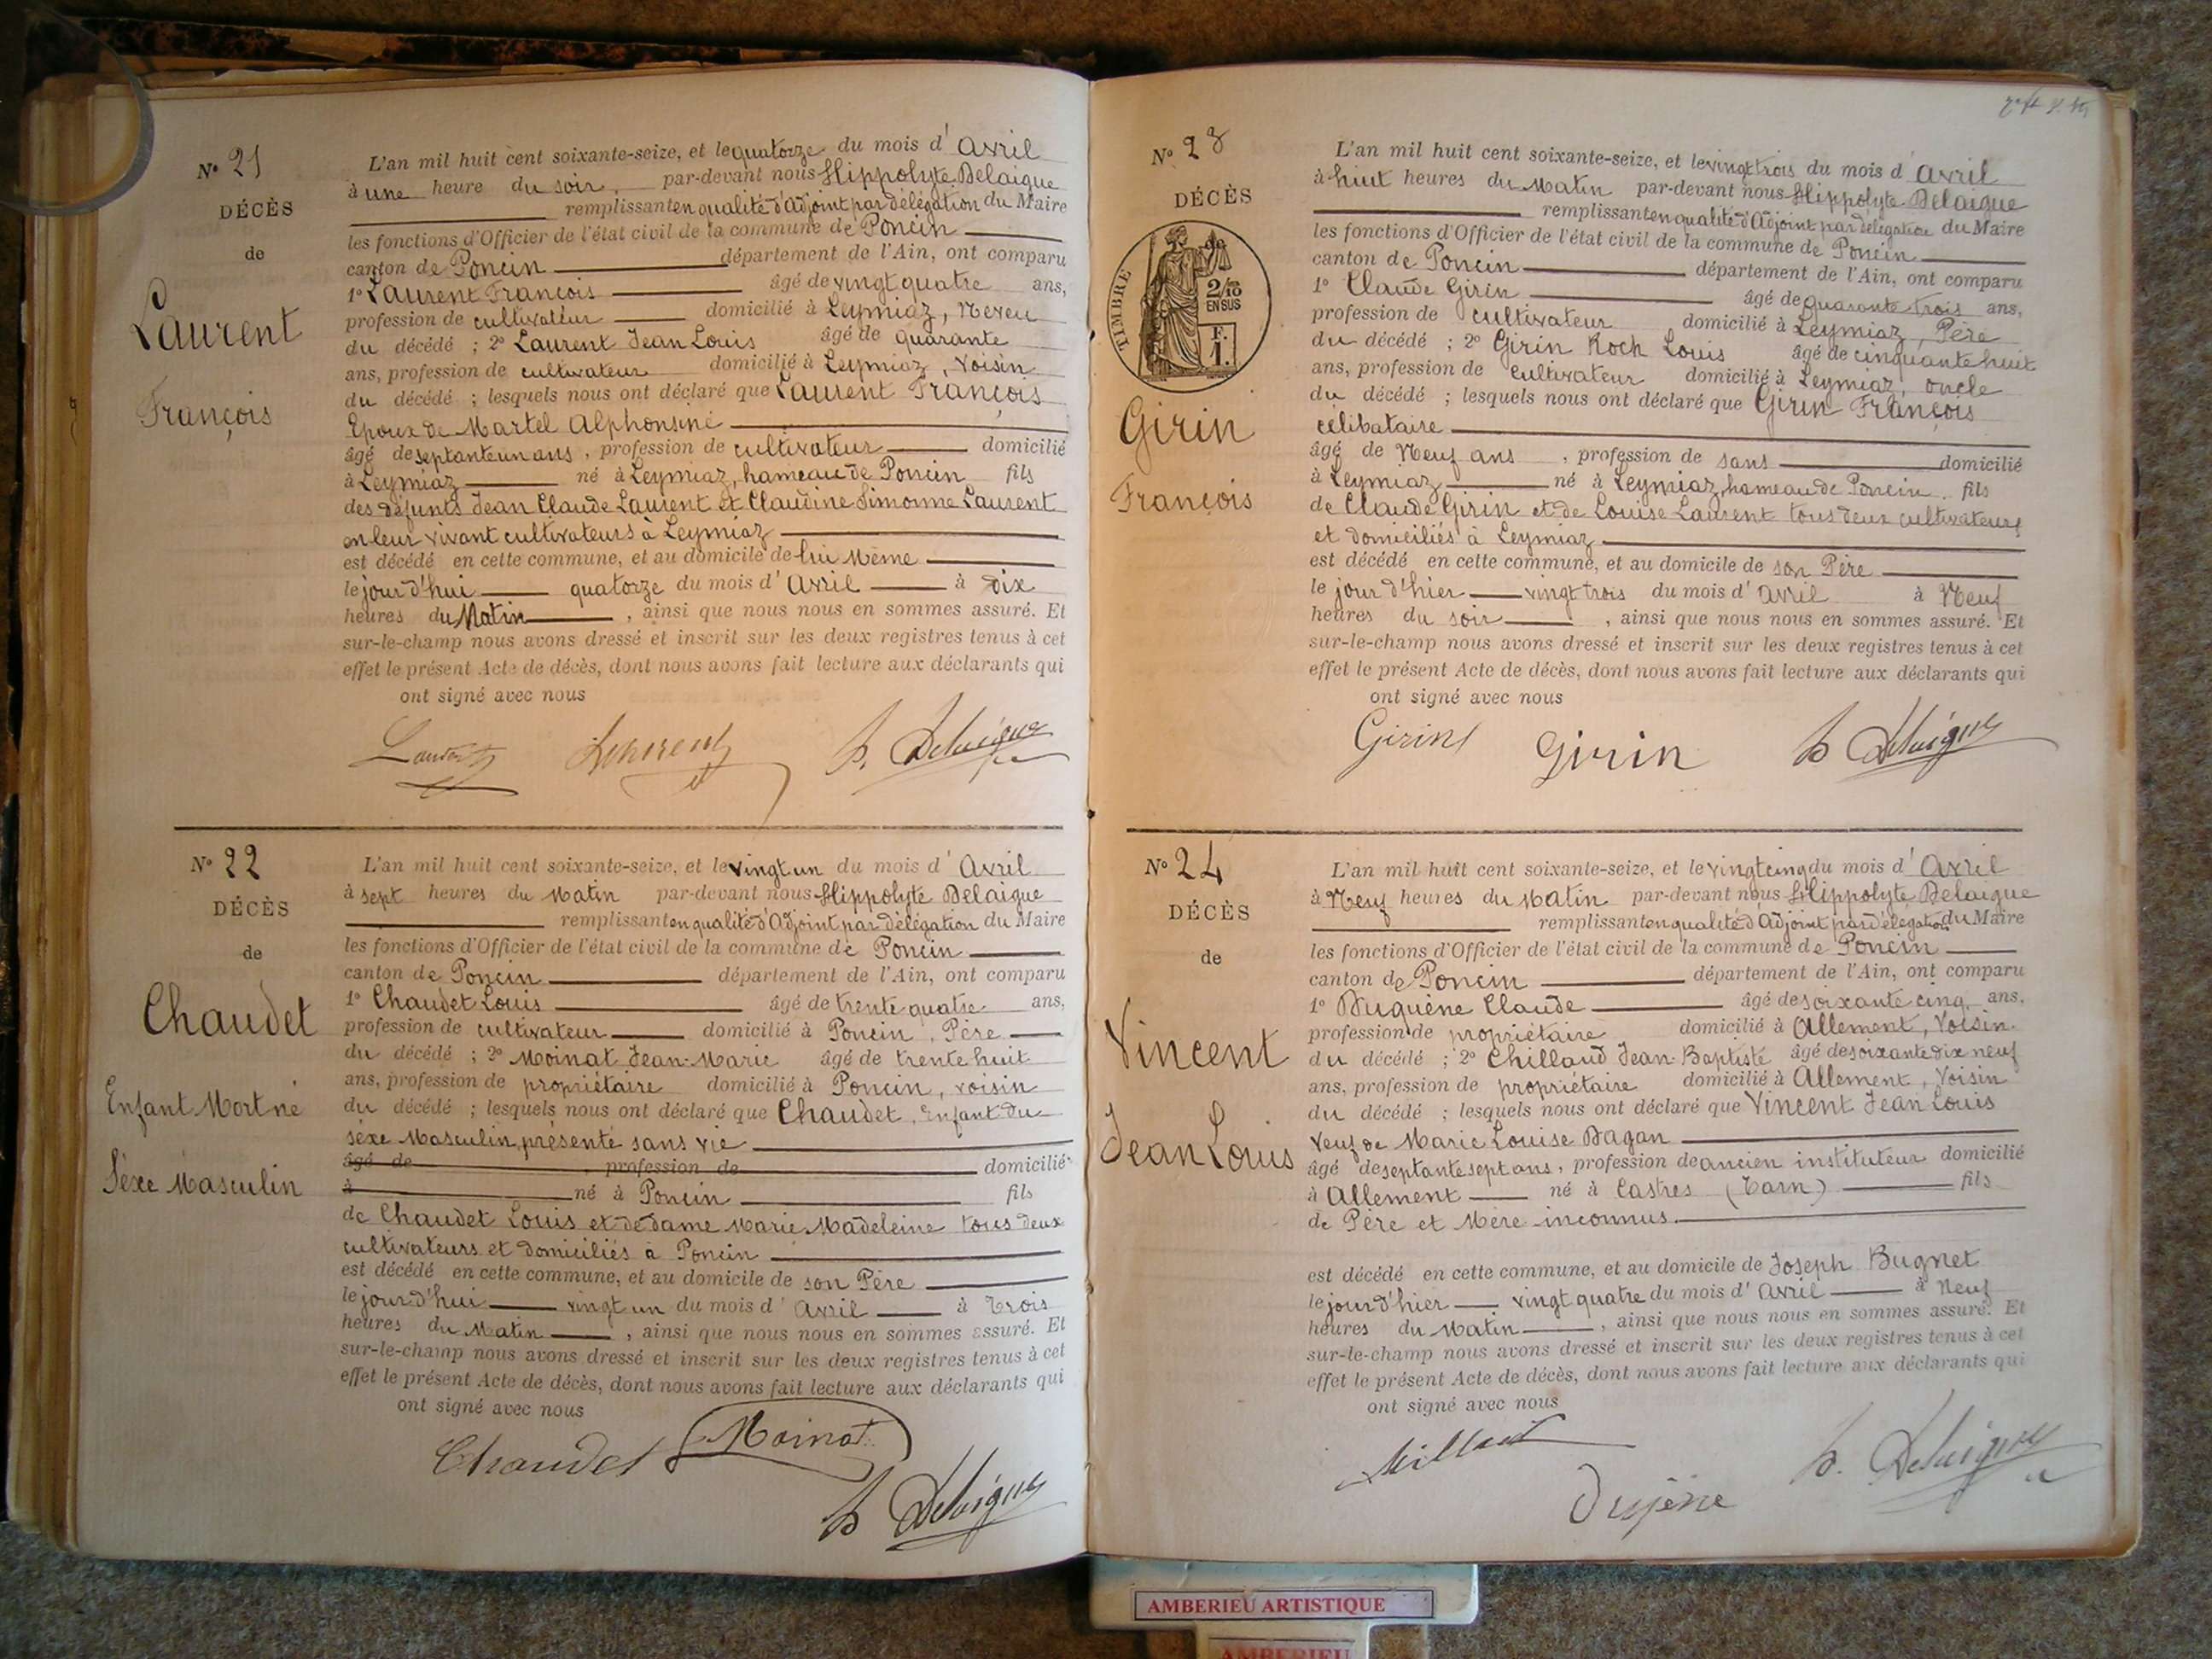 N° 21
DÉCÈS
de
Laurent
François
L'an mil huit cent soixante-seize, et le quatorze du mois d'avril
à une heure du soir, par-devant nous Hippolyte Delaigue
remplissant en qualité d'adjoint par délégation du Maire
les fonctions d'Officier de l'état civil de la commune de Poncin
canton de Poncin département de l'Ain, ont comparu
1° Laurent François âgé de vingt quatre ans,
profession de cultivateur domicilié à Leymiaz, Neveu
du décédé ; 2° Laurent Jean Louis âgé de quarante
ans, profession de cultivateur domicilié à Leymiaz, voisin
du décédé ; lesquels nous ont déclaré que Laurent François
Epoux de Martel Alphonsine
âgé de septante un ans, profession de cultivateur domicilié
à Leymiaz né à Leymiaz, hameau de Poncin fils
des défunts Jean Claude Laurent et Claudine Simonne Laurent
en leur vivant cultivateurs à Leymiaz
est décédé en cette commune, et au domicile de lui Même
le jour d'hui quatorze du mois d'avril à dix
heures du Matin, ainsi que nous nous en sommes assuré. Et
sur-le-champ nous avons dressé et inscrit sur les deux registres tenus à cet
effet le présent Acte de décès, dont nous avons fait lecture aux déclarants qui
ont signé avec nous
Laurent Laurent h. Delaigue
N° 22
DÉCÈS
de
Chaudet
Enfant Mort né
Séxe Masculin
L'an mil huit cent soixante-seize, et le vingt un du mois d'Avril
à sept heures du Matin par-devant nous Hippolyte Delaigue
remplissant en qualité d'Adjoint par délégation du Maire
les fonctions d'Officier de l'état civil de la commune de Poncin
canton de Poncin département de l'Ain, ont comparu
1° Chaudet Louis âgé de trente quatre ans,
profession de cultivateur domicilié à Poncin, Père
du décédé ; 2° Moinat Jean-Marie âgé de trente huit
ans, profession de propriétaire domicilié à Poncin, voisin
du décédé ; lesquels nous ont déclaré que Chaudet, Enfant du
séxe Masculin, présenté sans vie
âgé de , profession de domicilié
à né à Poncin fils
de Chaudet Louis et de dame Marie Madeleine tous deux
cultivateurs et domiciliés à Poncin
est décédé en cette commune, et au domicile de son Père
le jour d'hui vingt un du mois d'Avril à trois
heures du Matin, ainsi que nous nous en sommes assuré. Et
sur-le-champ nous avons dressé et inscrit sur les deux registres tenus à cet
effet le présent Acte de décès, dont nous avons fait lecture aux déclarants qui
ont signé avec nous
Chaudet Moinat
h Delaigue
N° 23
DÉCÈS
de
TIMBRE
2/10
EN SUS
F.
1.
Girin
François
L'an mil huit cent soixante-seize, et le vingt trois du mois d'avril
à huit heures du Matin par-devant nous Hippolyte Delaigue
remplissant en qualité d'Adjoint par délégation du Maire
les fonctions d'Officier de l'état civil de la commune de Poncin
canton de Poncin département de l'Ain, ont comparu
1° Claude Girin âgé de quarante trois ans,
profession de cultivateur domicilié à Leymiaz, Père
du décédé ; 2° Girin Roch Louis âgé de cinquante huit
ans, profession de cultivateur domicilié à Leymiaz, oncle
du décédé ; lesquels nous ont déclaré que Girin François
célibataire
âgé de Neuf ans, profession de sans domicilié
à Leymiaz né à Leymiaz, hameau de Poncin. fils
de Claude Girin et de Louise Laurent tous deux cultivateurs
et domiciliés à Leymiaz
est décédé en cette commune, et au domicile de son Père
le jour d'hier vingt trois du mois d'avril à Neuf
heures du soir, ainsi que nous nous en sommes assuré. Et
sur-le-champ nous avons dressé et inscrit sur les deux registres tenus à cet
effet le présent Acte de décès, dont nous avons fait lecture aux déclarants qui
ont signé avec nous
Girin Girin h Delaigue
N° 24
DÉCÈS
de
Vincent
Jean Louis
L'an mil huit cent soixante-seize, et le vingt cinq du mois d'Avril
à Neuf heures du Matin par-devant nous Hippolyte Delaigue
remplissant en qualité d'Adjoint par délégation du Maire
les fonctions d'Officier de l'état civil de la commune de Poncin
canton de Poncin département de l'Ain, ont comparu
1° Duguène Claude âgé de soixante cinq ans,
profession de propriétaire domicilié à Allement, Voisin
du décédé ; 2° Chilland Jean-Baptiste âgé de soixante dix neuf
ans, profession de propriétaire domicilié à Allement, Voisin
du décédé ; lesquels nous ont déclaré que Vincent Jean Louis
Veuf de Marie Louise Dagan
âgé de septante sept ans, profession de ancien instituteur domicilié
à Allement né à Castres (Tarn) fils
de Père et Mère inconnus.
est décédé en cette commune, et au domicile de Joseph Bugnet
le jour d'hier vingt quatre du mois d'Avril à Neuf
heures du Matin, ainsi que nous nous en sommes assuré. Et
sur-le-champ nous avons dressé et inscrit sur les deux registres tenus à cet
effet le présent Acte de décès, dont nous avons fait lecture aux déclarants qui
ont signé avec nous
h. Delaigue
AMBERIEU ARTISTIQUE
AMBERIEU